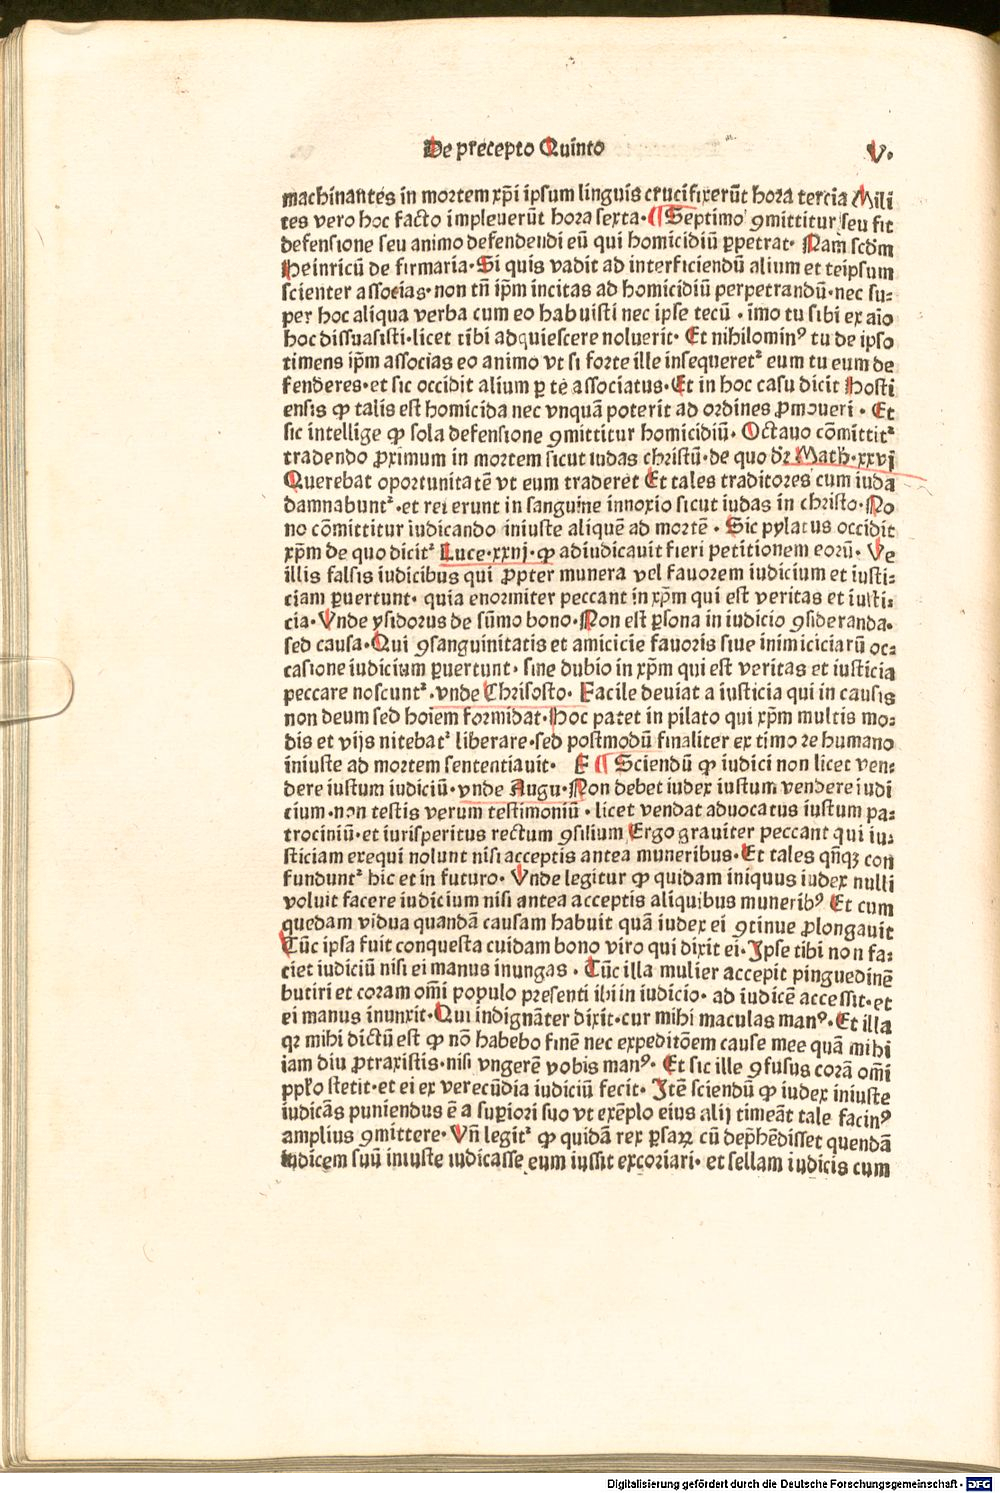 De precepto Quinto
V.
machinantes in mortem xp̄i ipsum linguis crucifixerūt hora tercia Mili
tes vero hoc facto impleuerūt hora sexta· ¶ Septimo ꝯmittitur seu fit
defensione seu animo defendendi eū qui homicidiū ꝑpetrat· Nam scd̄m
Heinricū de firmaria· Si quis vadit ad interficiendū alium et teipsum
scienter associas· non tn̄ ip̄m incitas ad homicidiū perpetrandū· nec su⸗
per hoc aliqua verba cum eo habuisti nec ipse tecū · imo tu sibi ex aīo
hoc dissuasisti· licet tibi adquiescere noluerit· Et nihilominꝰ tu de ipso
timens ip̄m associas eo animo vt si forte ille insequeret᷑ eum tu eum de
fenderes· et sic occidit alium ꝑ te associatus· Et in hoc casu dicit Hosti
ensis ꝙ talis est homicida nec vnquā poterit ad ordines ꝓmoueri · Et
sic intellige ꝙ sola defensione ꝯmittitur homicidiū· Octauo cōmittit᷑
tradendo ꝓximum in mortem sicut iudas christū· de quo dr̄ Math· xxvj
Querebat oportunitatē vt eum traderet Et tales traditores cum iuda
damnabunt᷑ · et rei erunt in sanguine innoxio sicut iudas in christo· No
no cōmittitur iudicando iniuste aliquē ad mortē · Sic pylatus occidit
xp̄m de quo dicit᷑ Luce· xxiij· ꝙ adiudicauit fieri petitionem eorū· Ve
illis falsis iudicibus qui ꝓpter munera vel fauorem iudicium et iusti⸗
ciam ꝑuertunt· quia enormiter peccant in xp̄m qui est veritas et iusti⸗
cia· Vnde ysidorus de sūmo bono· Non est ꝑsona in iudicio ꝯsideranda·
sed causa· Qui ꝯsanguinitatis et amicicie fauoris siue inimiciciarū oc⸗
casione iudicium ꝑuertunt· sine dubio in xp̄m qui est veritas et iusticia
peccare noscunt᷑ · vnde Chrisosto· Facile deuiat a iusticia qui in causis
non deum sed hoīem formidat· Hoc patet in pilato qui xp̄m multis mo⸗
dis et vijs nitebat᷑ liberare· sed postmodū finaliter ex timore humano
iniuste ad mortem sententiauit· F ¶ Sciendū ꝙ iudici non licet ven⸗
dere iustum iudiciū· vnde Augu· Non debet iudex iustum vendere iudi
cium· non testis verum testimoniū · licet vendat aduocatus iustum pa⸗
trociniū· et iurisperitus rectum ꝯsilium Ergo grauiter peccant qui iu⸗
sticiam exequi nolunt nisi acceptis antea muneribus· Et tales qn̄qꝫ con
fundunt᷑ hic et in futuro· Vnde legitur ꝙ quidam iniquus iudex nulli
voluit facere iudicium nisi antea acceptis aliquibus muneribꝰ Et cum
quedam vidua quandā causam habuit quā iudex ei ꝯtinue ꝓlongauit
Tūc ipsa fuit conquesta cuidam bono viro qui dixit ei· Ipse tibi non fa⸗
ciet iudiciū nisi ei manus inungas · Tūc illa mulier accepit pinguedinē
butiri et coram om̄i populo presenti ibi in iudicio· ad iudicē accessit· et
ei manus inunxit· Qui indignāter dixit· cur mihi maculas manꝰ· Et illa
qꝛ mihi dictū est ꝙ nō habebo finē nec expeditōem cause mee quā mihi
iam diu ꝓtraxistis· nisi vngerē vobis manꝰ· Et sic ille ꝯfusus corā om̄i
pplo stetit· et ei ex verecūdia iudiciū fecit· Itē sciendū ꝙ iudex iniuste
iudicās puniendus ē a suꝑiori suo vt exēplo eius alij timeāt tale facinꝰ
amplius ꝯmittere· Vn̄ legit᷑ ꝙ quidā rex ꝑsaꝝ cū dep̄hēdisset quendā
iudicem suū iniuste iudicasse eum iussit excoriari· et sellam iudicis cum
Digitalisierung gefördert durch die Deutsche Forschungsgemeinschaft · DFG